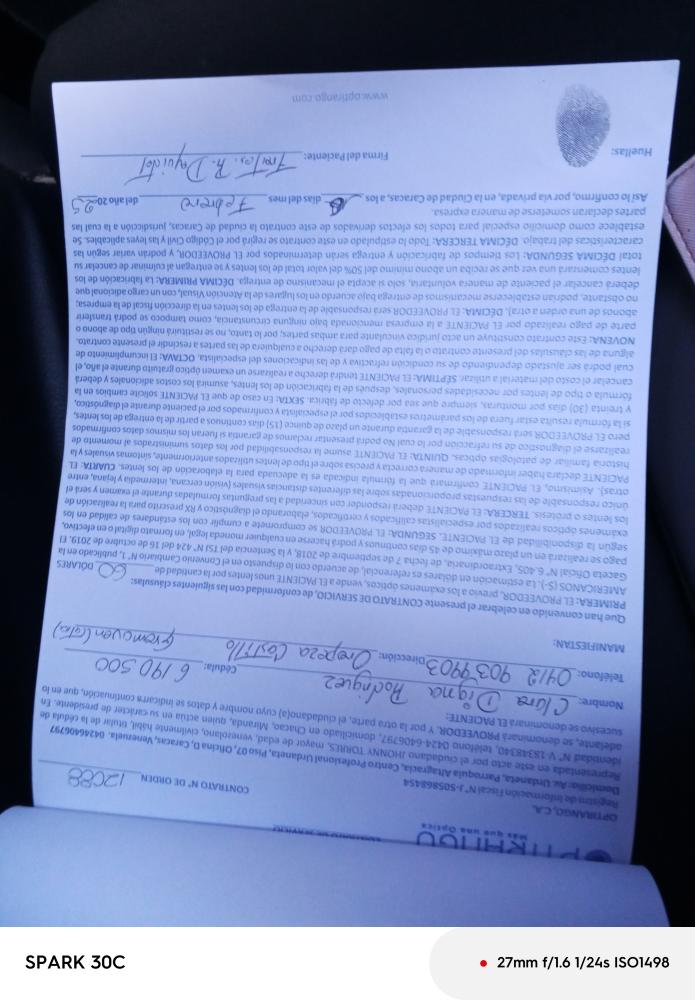 OPTIRANGO
Más que una Óptica
OPTIRANGO, C.A.
Registro de Información Fiscal N° J-505868454
CONTRATO DE N° ORDEN 12088
Domicilio: Av. Urdaneta, Parroquia Altagracia, Centro Profesional Urdaneta, Piso 07, Oficina D, Caracas, Venezuela. 04242406797
Representada en este acto por el ciudadano JHONNY TORRES, mayor de edad, venezolano, civilmente hábil, titular de la cédula de
identidad N° V 18348340, teléfono 0424-2406797, domiciliado en Chacao, Miranda, quien actúa en su carácter de presidente. En
adelante, se denominará PROVEEDOR. Y por la otra parte, el ciudadano(a) cuyo nombre y datos se indicara continuación, que en lo
sucesivo se denominará EL PACIENTE:
Nombre: Clara Digna Rodriguez Cédula: 6 140 500
Teléfono: 0412 903 9903 Dirección: Oropeza Castillo
MANIFIESTAN:
Que han convenido en celebrar el presente CONTRATO DE SERVICIO, de conformidad con las siguientes cláusulas:
PRIMERA: EL PROVEEDOR, previo a los exámenes ópticos, vende a EL PACIENTE unos lentes por la cantidad de 60 DÓLARES
AMERICANOS ($-). La estimación en dólares es referencial, de acuerdo con lo dispuesto en el Convenio Cambiario N° 1, publicado en la
Gaceta Oficial N° 6.405, Extraordinaria, de fecha 7 de septiembre de 2018, y la Sentencia del TSJ N° 424 del 16 de octubre de 2019. El
pago se realizará en un plazo máximo de 45 días continuos y podrá hacerse en cualquier moneda legal, en formato digital o en efectivo,
según la disponibilidad de EL PACIENTE. SEGUNDA: EL PROVEEDOR se compromete a cumplir con los estándares de calidad en los
exámenes ópticos realizados por especialistas calificados y certificados, elaborando el diagnóstico y RX prescrito para la realización de
los lentes o prótesis. TERCERA: EL PACIENTE deberá responder con sinceridad a las preguntas formuladas durante el examen y será el
único responsable de las respuestas proporcionadas sobre las diferentes distancias visuales (visión cercana, intermedia y lejana, entre
otras). Asimismo, EL PACIENTE confirmará que la fórmula indicada es la adecuada para la elaboración de los lentes. CUARTA: EL
PACIENTE declara haber informado de manera correcta y precisa sobre el tipo de lentes utilizados anteriormente, síntomas visuales y la
historia familiar de patologías ópticas. QUINTA: EL PACIENTE asume la responsabilidad por los datos suministrados al momento de
realizarse el diagnóstico de su refracción por lo cual No podrá presentar reclamos de garantía si fueron los mismos datos confirmados
pero EL PROVEEDOR será responsable de la garantía durante un plazo de quince (15) días continuos a partir de la entrega de los lentes,
si la formula resulta estar fuera de los parámetros establecidos por el especialista y confirmados por el paciente durante el diagnóstico,
y treinta (30) días por monturas, siempre que sea por defecto de fábrica. SEXTA: En caso de que EL PACIENTE solicite cambio en la
formula o tipo de lentes por necesidades personales, después de la fabricación de los lentes, asumirá los costos adicionales y deberá
cancelar el costo del material a utilizar. SEPTIMA: EL PACIENTE tendrá derecho a realizarse un examen óptico gratuito durante el año, el
cual podrá ser ajustado dependiendo de su condición refractiva y de las indicaciones del especialista. OCTAVA: El incumplimiento de
alguna de las cláusulas del presente contrato o la falta de pago dará derecho a cualquiera de las partes a rescindir el presente contrato.
NOVENA: Este contrato constituye un acto jurídico vinculante para ambas partes; por lo tanto, no se restituirá ningún tipo de abono o
parte de pago realizado por EL PACIENTE a la empresa mencionada bajo ninguna circunstancia, como tampoco se podrá transferir
abonos de una orden a otra). DÉCIMA: EL PROVEEDOR será responsable de la entrega de los lentes en la dirección fiscal de la empresa;
no obstante, podrían establecerse mecanismos de entrega bajo acuerdo en los lugares de la Atención Visual, con un cargo adicional que
deberá cancelar el paciente de manera voluntaria, solo si acepta el mecanismo de entrega. DÉCIMA PRIMERA: La fabricación de los
lentes comenzara una vez que se reciba un abono mínimo del 50% del valor total de los lentes y se entregan al culminar de cancelar su
total DÉCIMA SEGUNDA: Los tiempos de fabricación y entrega serán determinados por EL PROVEEDOR, y podrán variar según las
características del trabajo. DÉCIMA TERCERA: Todo lo estipulado en este contrato se regirá por el Código Civil y las leyes aplicables. Se
establece como domicilio especial para todos los efectos derivados de este contrato la ciudad de Caracas, jurisdicción a la cual las
partes declaran someterse de manera expresa.
Así lo confirmo, por vía privada, en la Ciudad de Caracas, a los días del mes Febrero del año 2025
Huellas:
Firma del Paciente:
www.optirango.com
SPARK 30C
27mm f/1.6 1/24s ISO1498